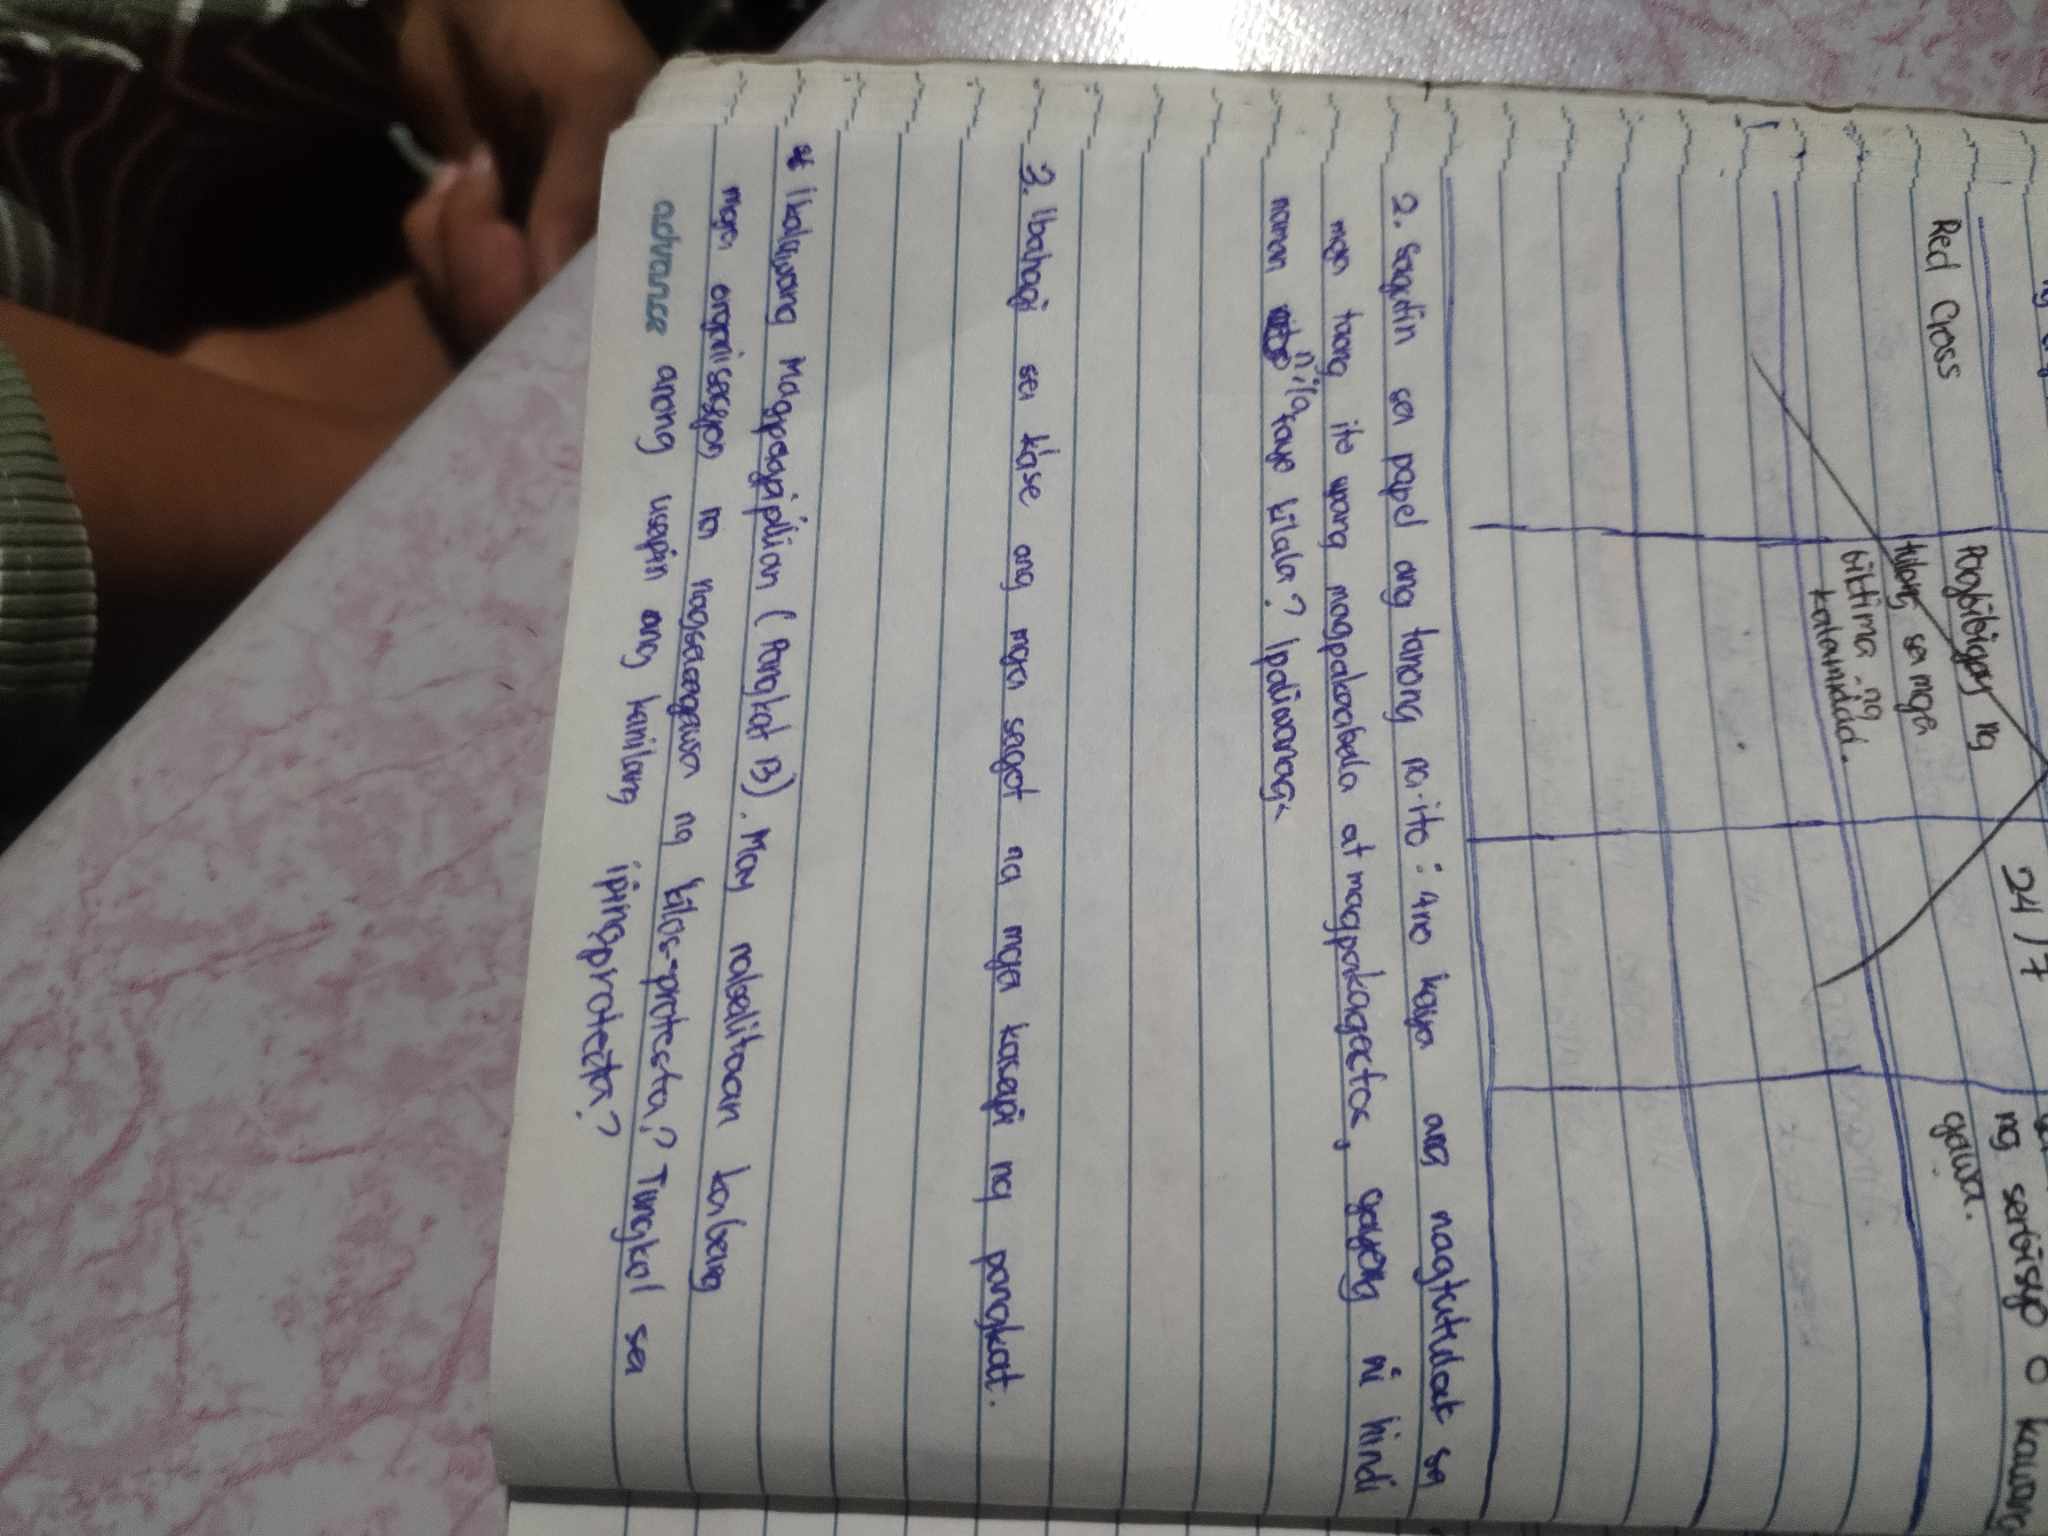 24/7
ng serbisyo o
Red Cross
Pagbibigay ng
gawa.
tulong sa mga
biktima ng
kalamidad.
2. Sagutin sa papel ang tanong na ito: Ano kaya ang nagtutulak sa
mga taong ito upang magpakaabala at magpakagastos, gayong ni hindi
naman nila tayo kilala? Ipaliwanag.
3. Ibahagi sa klase ang mga sagot na mga kasapi ng pangkat.
* Ikalawang Magpapapilian (Pangkat B). May nabalitaan ka bang
mga organisasyon na nagsasagawa ng kilos-protesta? Tungkol sa
advance anong usapin ang kanilang ipinaprotesta?